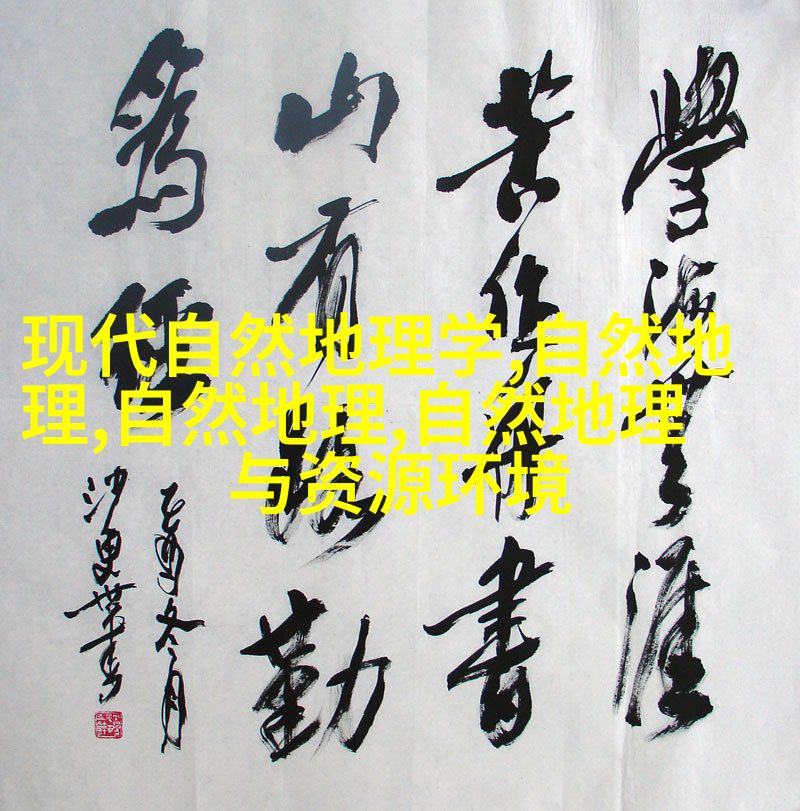 现代自然地理学,自然地
理,自然地理,自然地理
与资源环境
學海無涯
苦作舟書
山有路勤
為徑
乙酉冬月